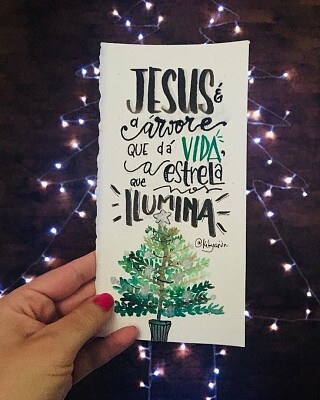 JESUS é
a árvore
QUE DÁ VIDA,
a estrela
QUE nos
ILUMINA